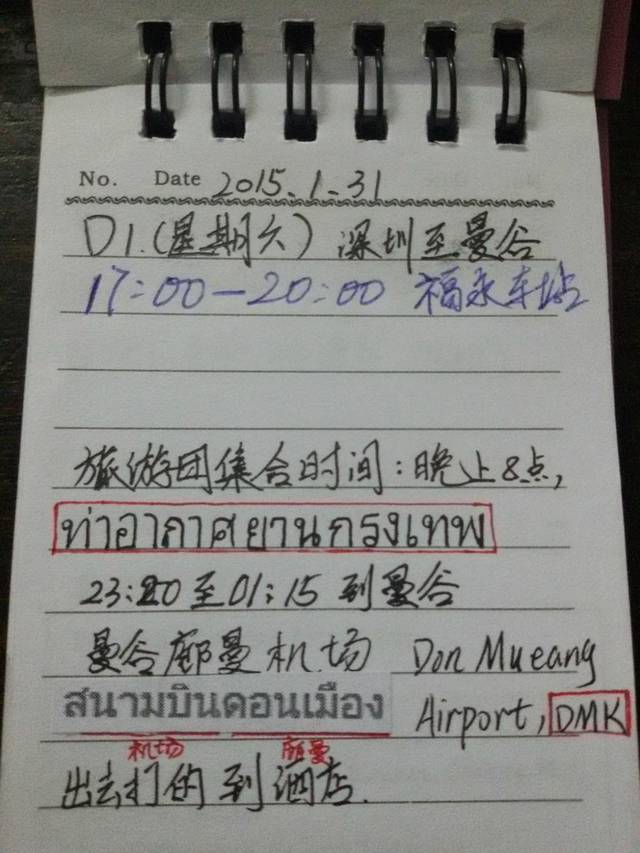 No. Date 2015.1.31
D1.(星期六) 深圳至曼谷
17:00—20:00 福永车站
旅游团集合时间:晚上8点,
ท่าอากาศยานกรุงเทพ
23:20至01:15到曼谷
曼谷廊曼机场 Don Mueang
สนามบินดอนเมือง Airport, DMK
机场 廊曼
出去打的到酒店.